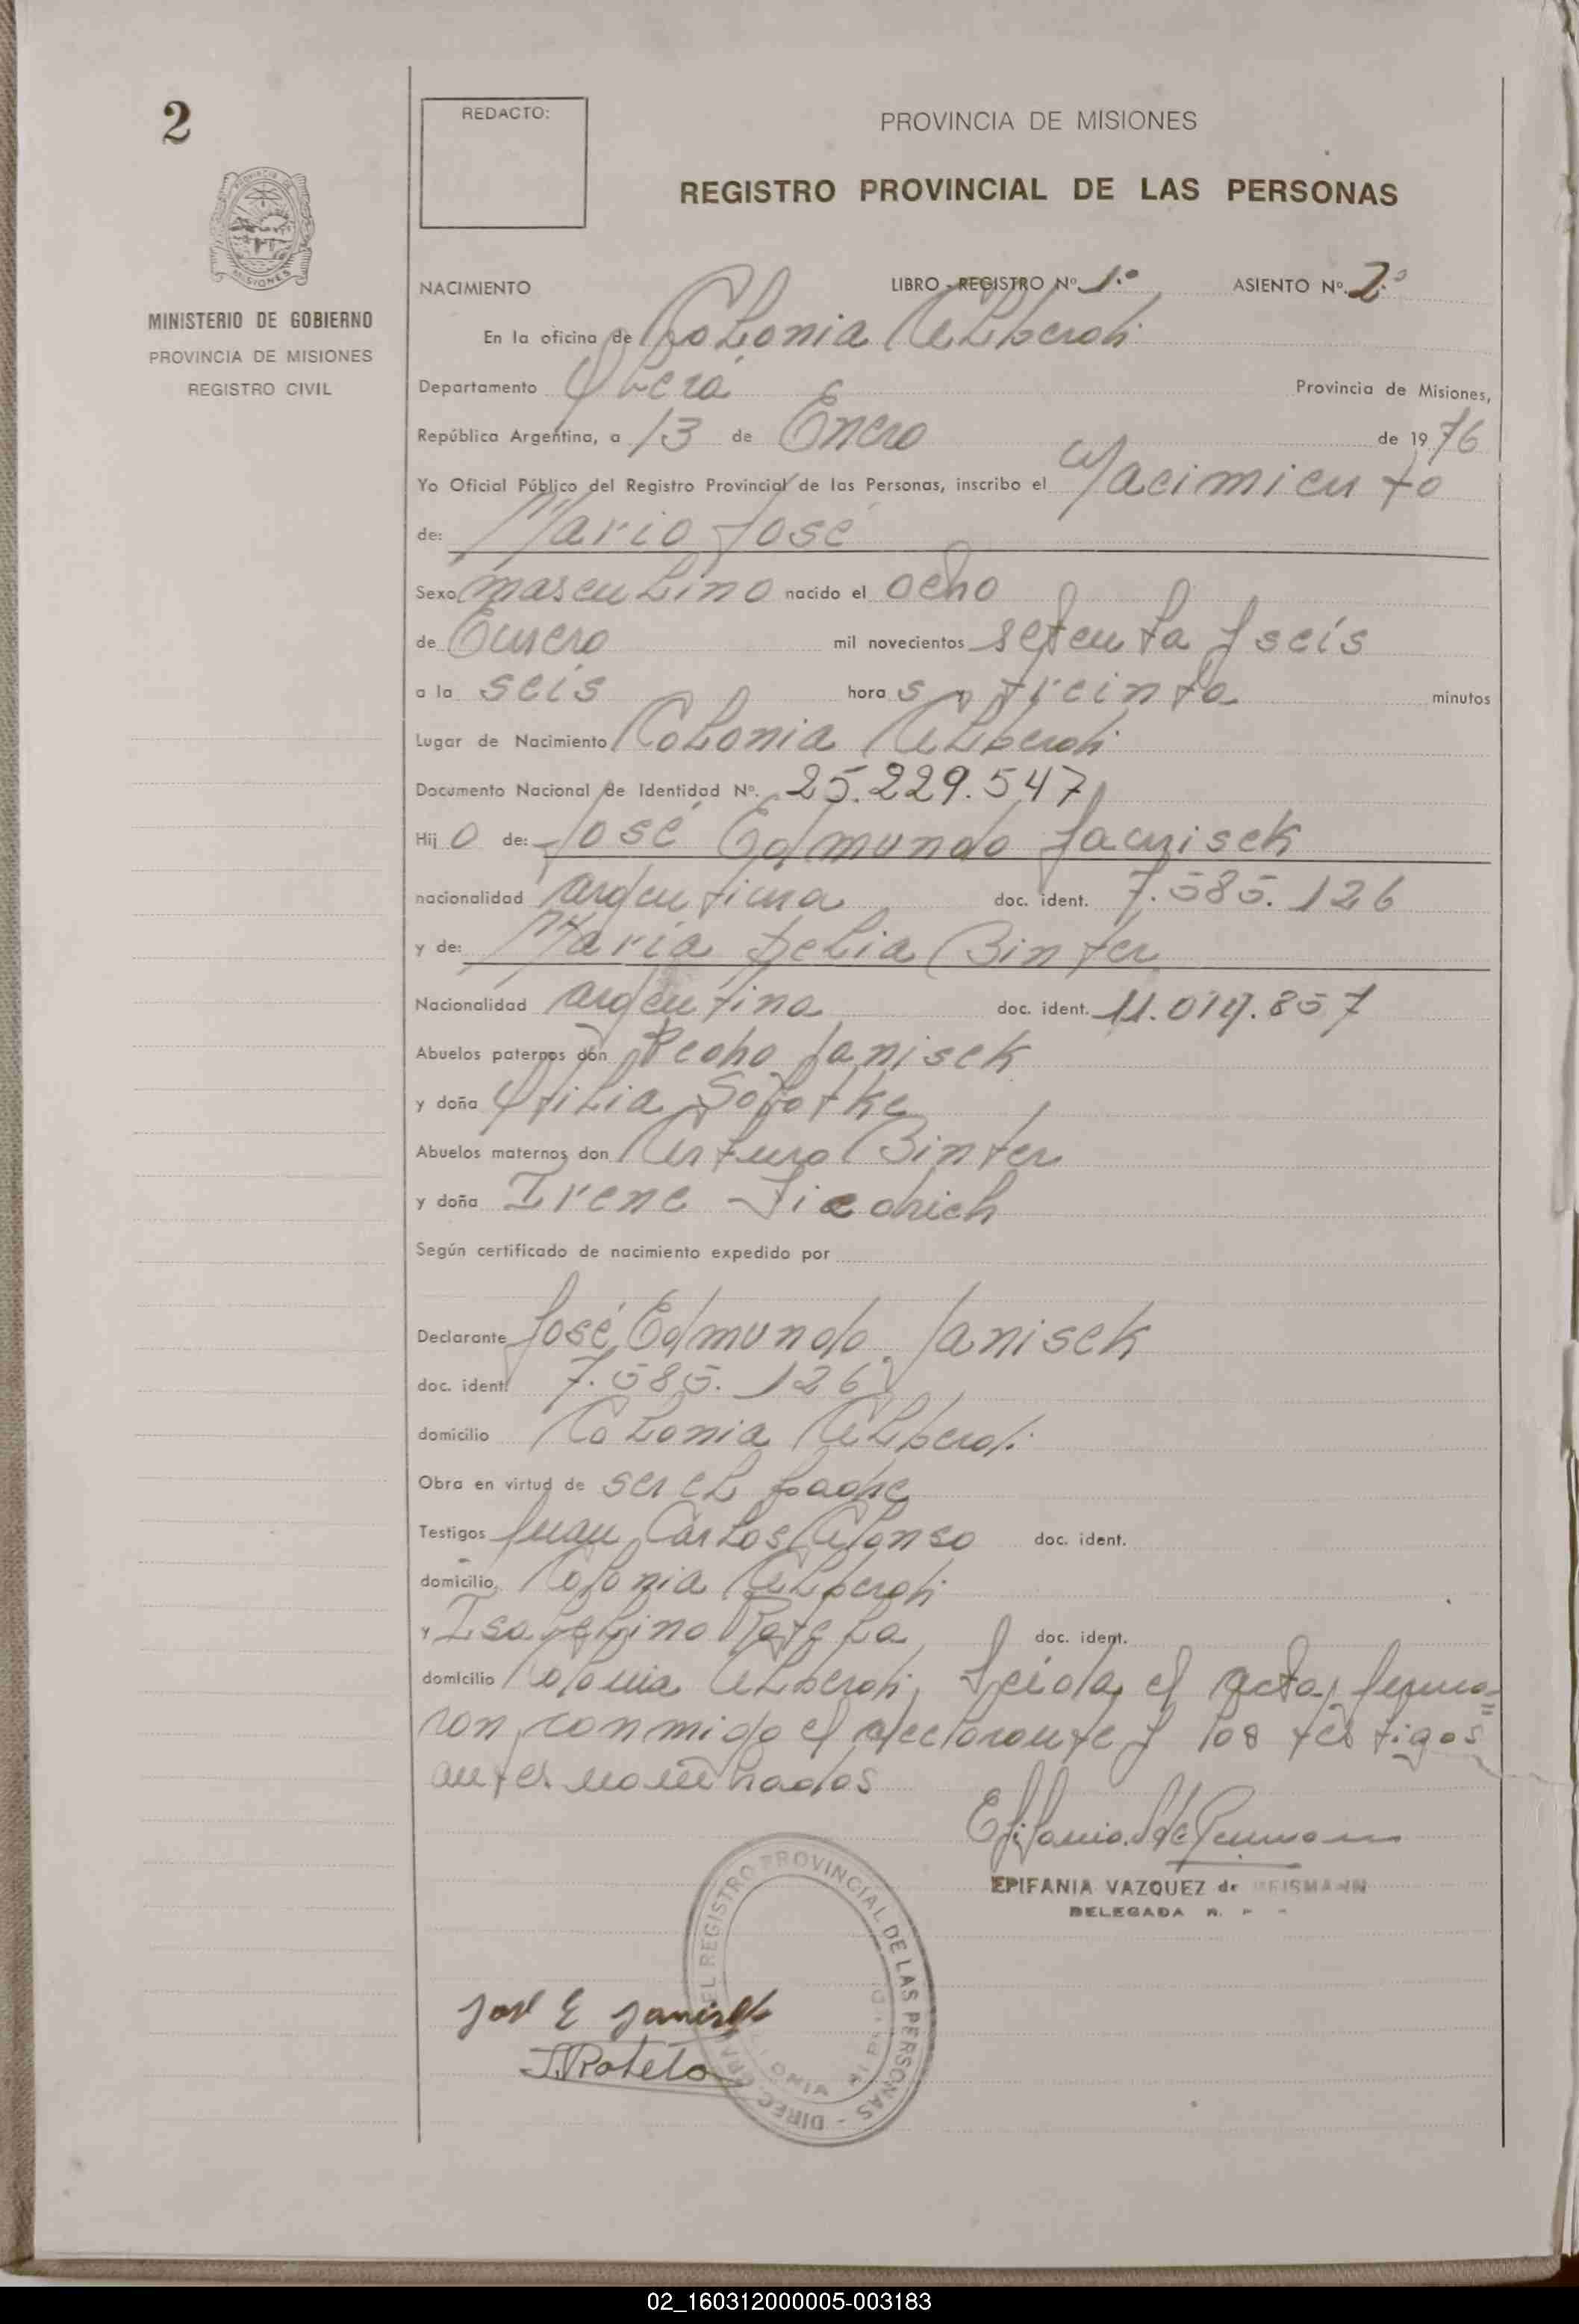 2
REDACTO:
PROVINCIA DE MISIONES
REGISTRO PROVINCIAL DE LAS PERSONAS
MINISTERIO DE GOBIERNO
PROVINCIA DE MISIONES
REGISTRO CIVIL
NACIMIENTO LIBRO - REGISTRO Nº 1º ASIENTO Nº 2º
En la oficina de Colonia Alberdi
Departamento Oberá Provincia de Misiones,
República Argentina, a 13 de Enero de 1976
Yo Oficial Público del Registro Provincial de las Personas, inscribo el Nacimiento
de: Mario José
Sexo masculino nacido el ocho
de Enero mil novecientos setenta y seis
a la seis hora s y treinta minutos
Lugar de Nacimiento Colonia Alberdi
Documento Nacional de Identidad Nº. 25.229.547
Hij o de: José Edmundo Janisek
nacionalidad argentina doc. ident. 7.585.126
y de: María Delia Binter
Nacionalidad argentina doc. ident. 11.019.857
Abuelos paternos don Pedro Janisek
y doña Otilia
Abuelos maternos don Arturo Binter
y doña Irene
Según certificado de nacimiento expedido por
Declarante José Edmundo Janisek
doc. ident. 7.585.126
domicilio Colonia Alberdi
Obra en virtud de ser el padre
Testigos Juan Carlos Alonso doc. ident.
domicilio Colonia Alberdi
y Isabelino Rotela doc. ident.
domicilio Colonia Alberdi, Leida el acta, firma=
ron conmigo el declarante y los testigos
antes nombrados
EPIFANIA VAZQUEZ de WEISMANN
DELEGADA R. P.
DIREC. GRAL. DEL REGISTRO PROVINCIAL DE LAS PERSONAS -
José E Janisek
I. Rotela
02_160312000005-003183